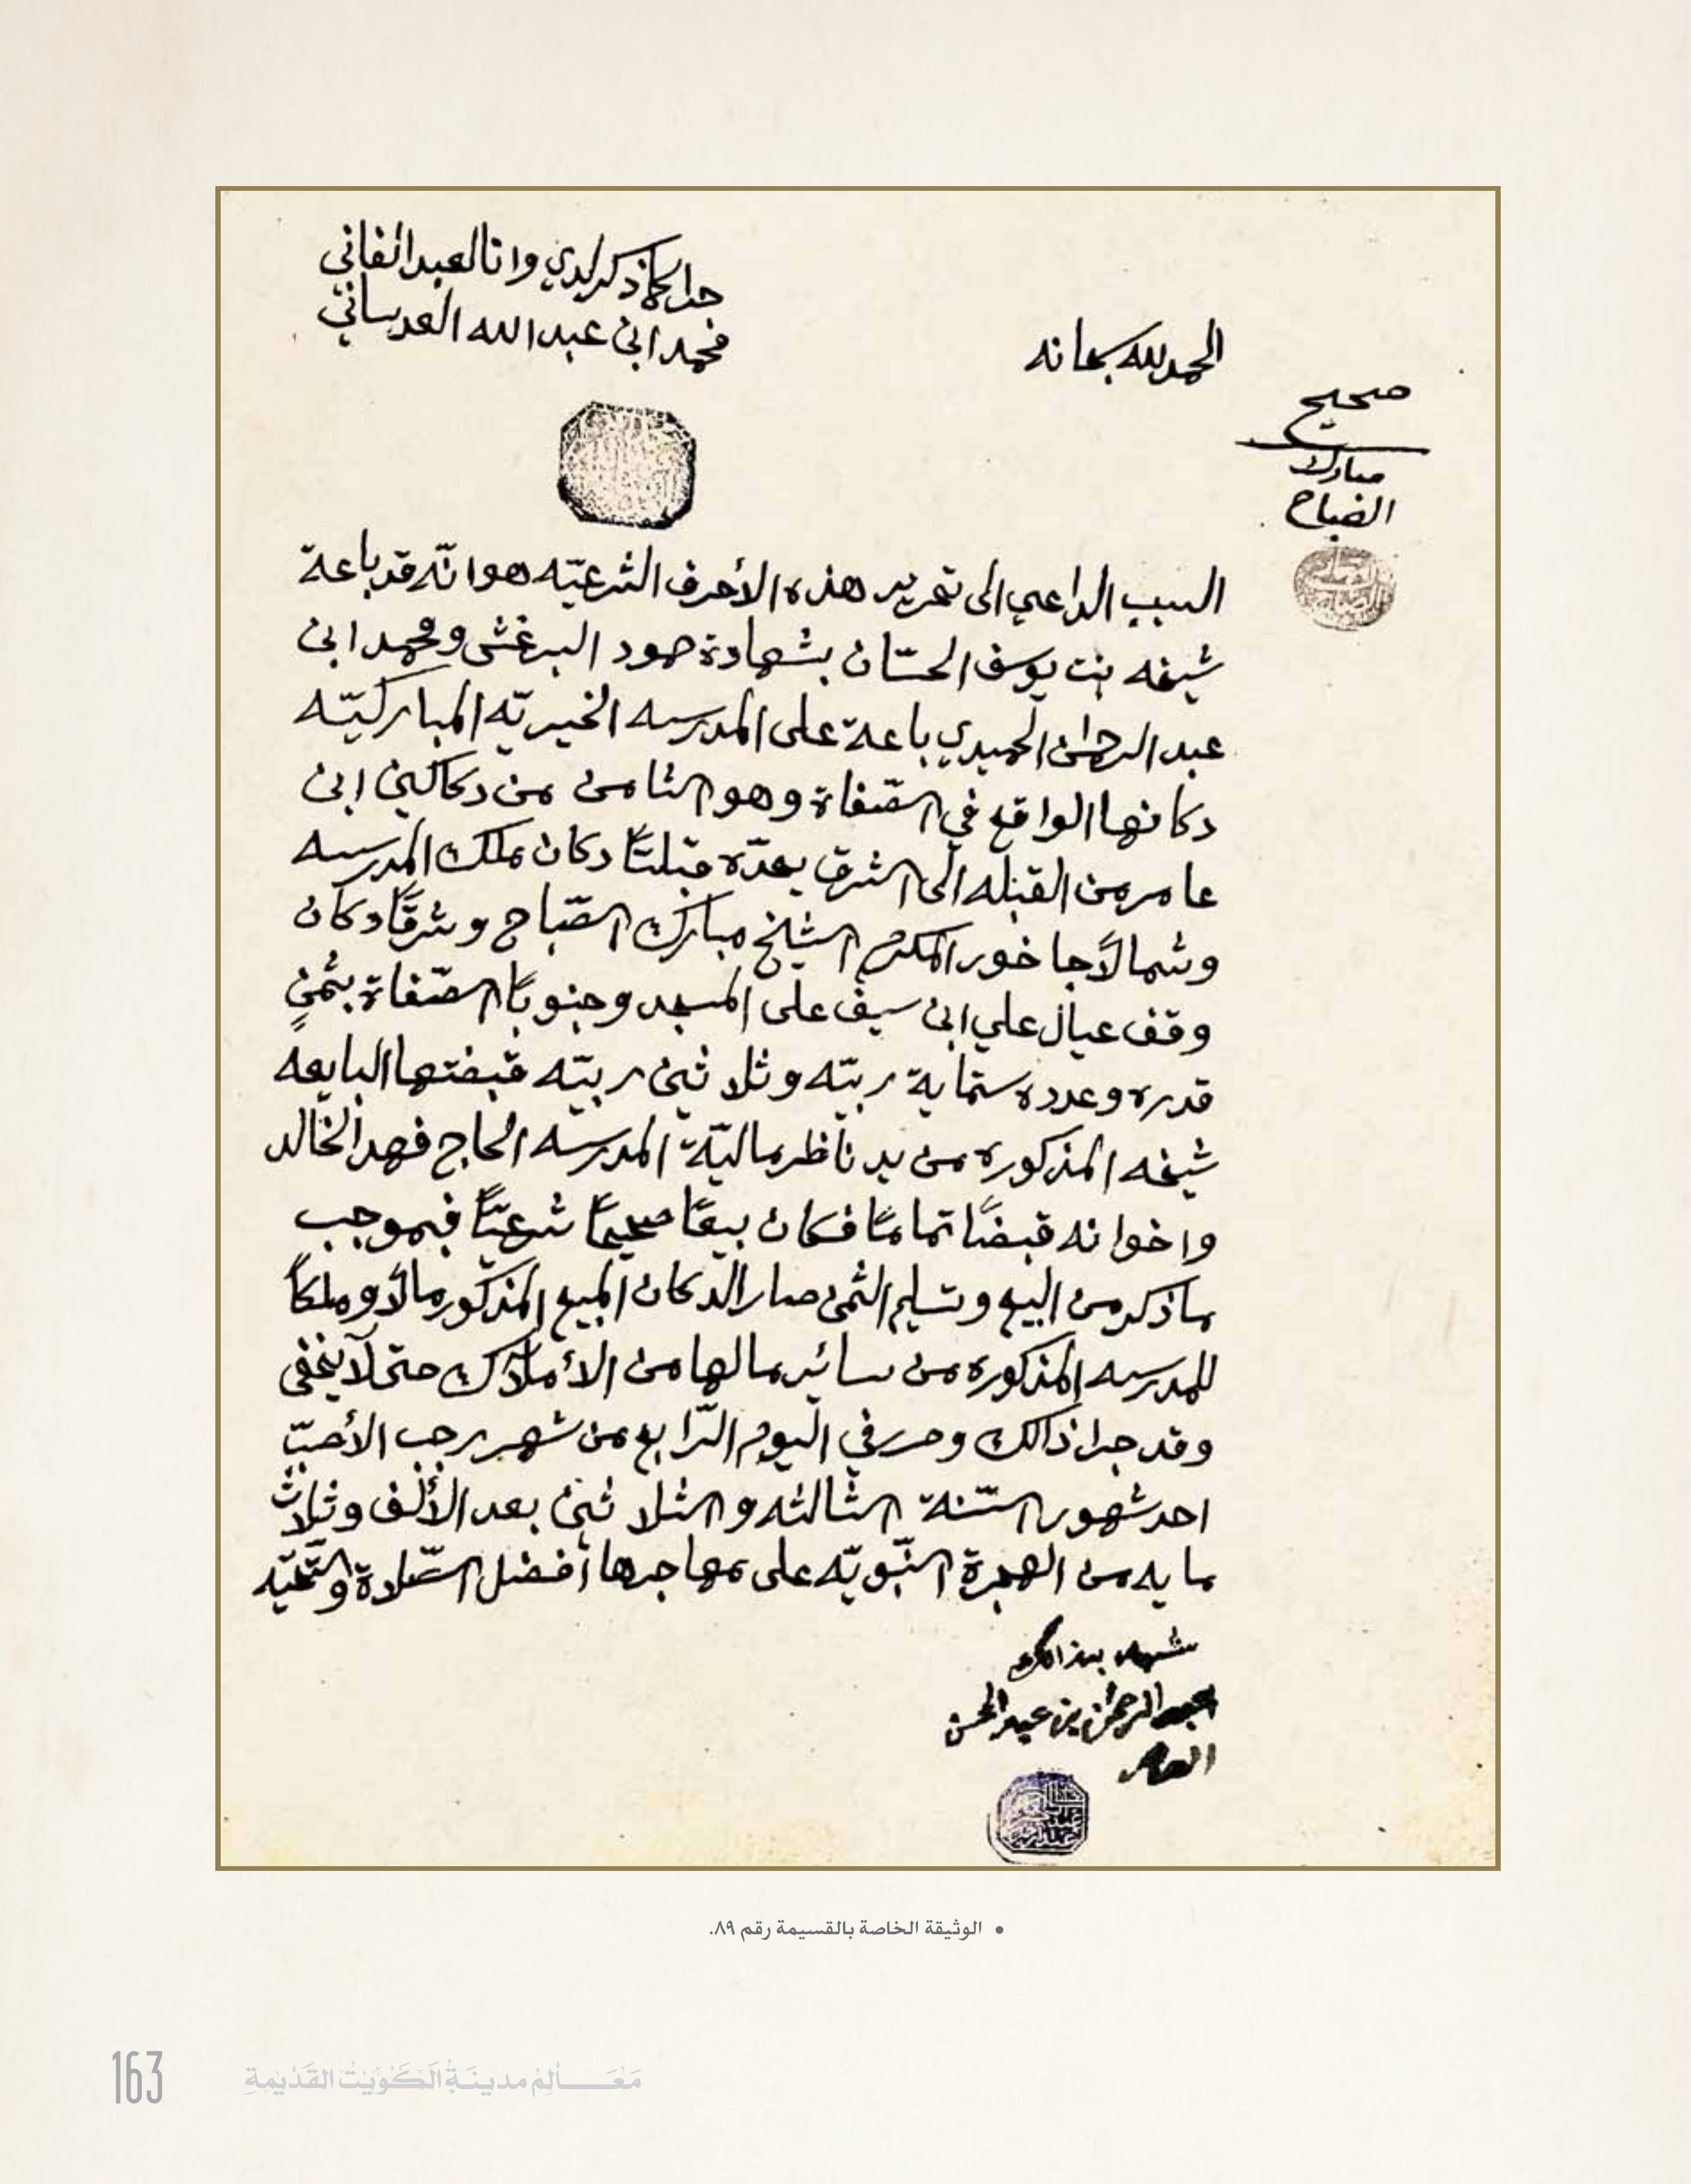 جرا كما ذكر لدي وانا العبد الفاني
محمد ابن عبدالله العدساني
الحمدلله سبحانه
صحيح
مبارك
الصباح
السبب الداعي الى تحرير هذه الأحرف الشرعيّه هو انّه قد باعة
شيخه بنت يوسف الحسّان بشهادة حمود البرغش ومحمد ابن
عبد الرحمن الحميدي باعة على المدرسه الخيريّه المباركيّه
دكانها الواقع في الصّفاة وهو الثامن من دكاكين ابن
عامر من القبله الى الشرق يحدّه قبلتًا دكان ملك المدرسه
وشمالًا جاخور المكرم الشيخ مبارك الصّباح وشرقًا دكان
وقف عيال علي ابن سيف على المسجد وجنوبًا الصّفاة بثمنٍ
قدره وعدده ستماية ربيّه وثلاثين ربيّه قبضتها البايعه
شيخه المذكوره من يد ناظر ماليّة المدرسه الحاج فهد الخالد
واخوانه قبضًا تمامًا فكان بيعًا صحيحًا شرعيًّا فبموجب
ماذكر من البيع وتسليم الثمن صار الدكان المبيع المذكور مالًا وملكًا
للمدرسه المذكوره من سائير مالها من الأملاك حتى لا يخفى
وقد جرا ذالك وحرر في اليوم الرّابع من شهر رجب الأصبّ
احد شهور السّنة الثالثه والثلاثين بعد الألف وثلاث
مايه من الهجرة النّبويّه على مهاجرها أفضل الصّلاة والتّحيّه
شهد بذالك
عبدالرحمن بن عبدالمحسن
العامر
• الوثيقة الخاصة بالقسيمة رقم ٨٩.
163
مَعَـــالِمْ مدينَةِ الكُوَيتْ القَدْيمةِ